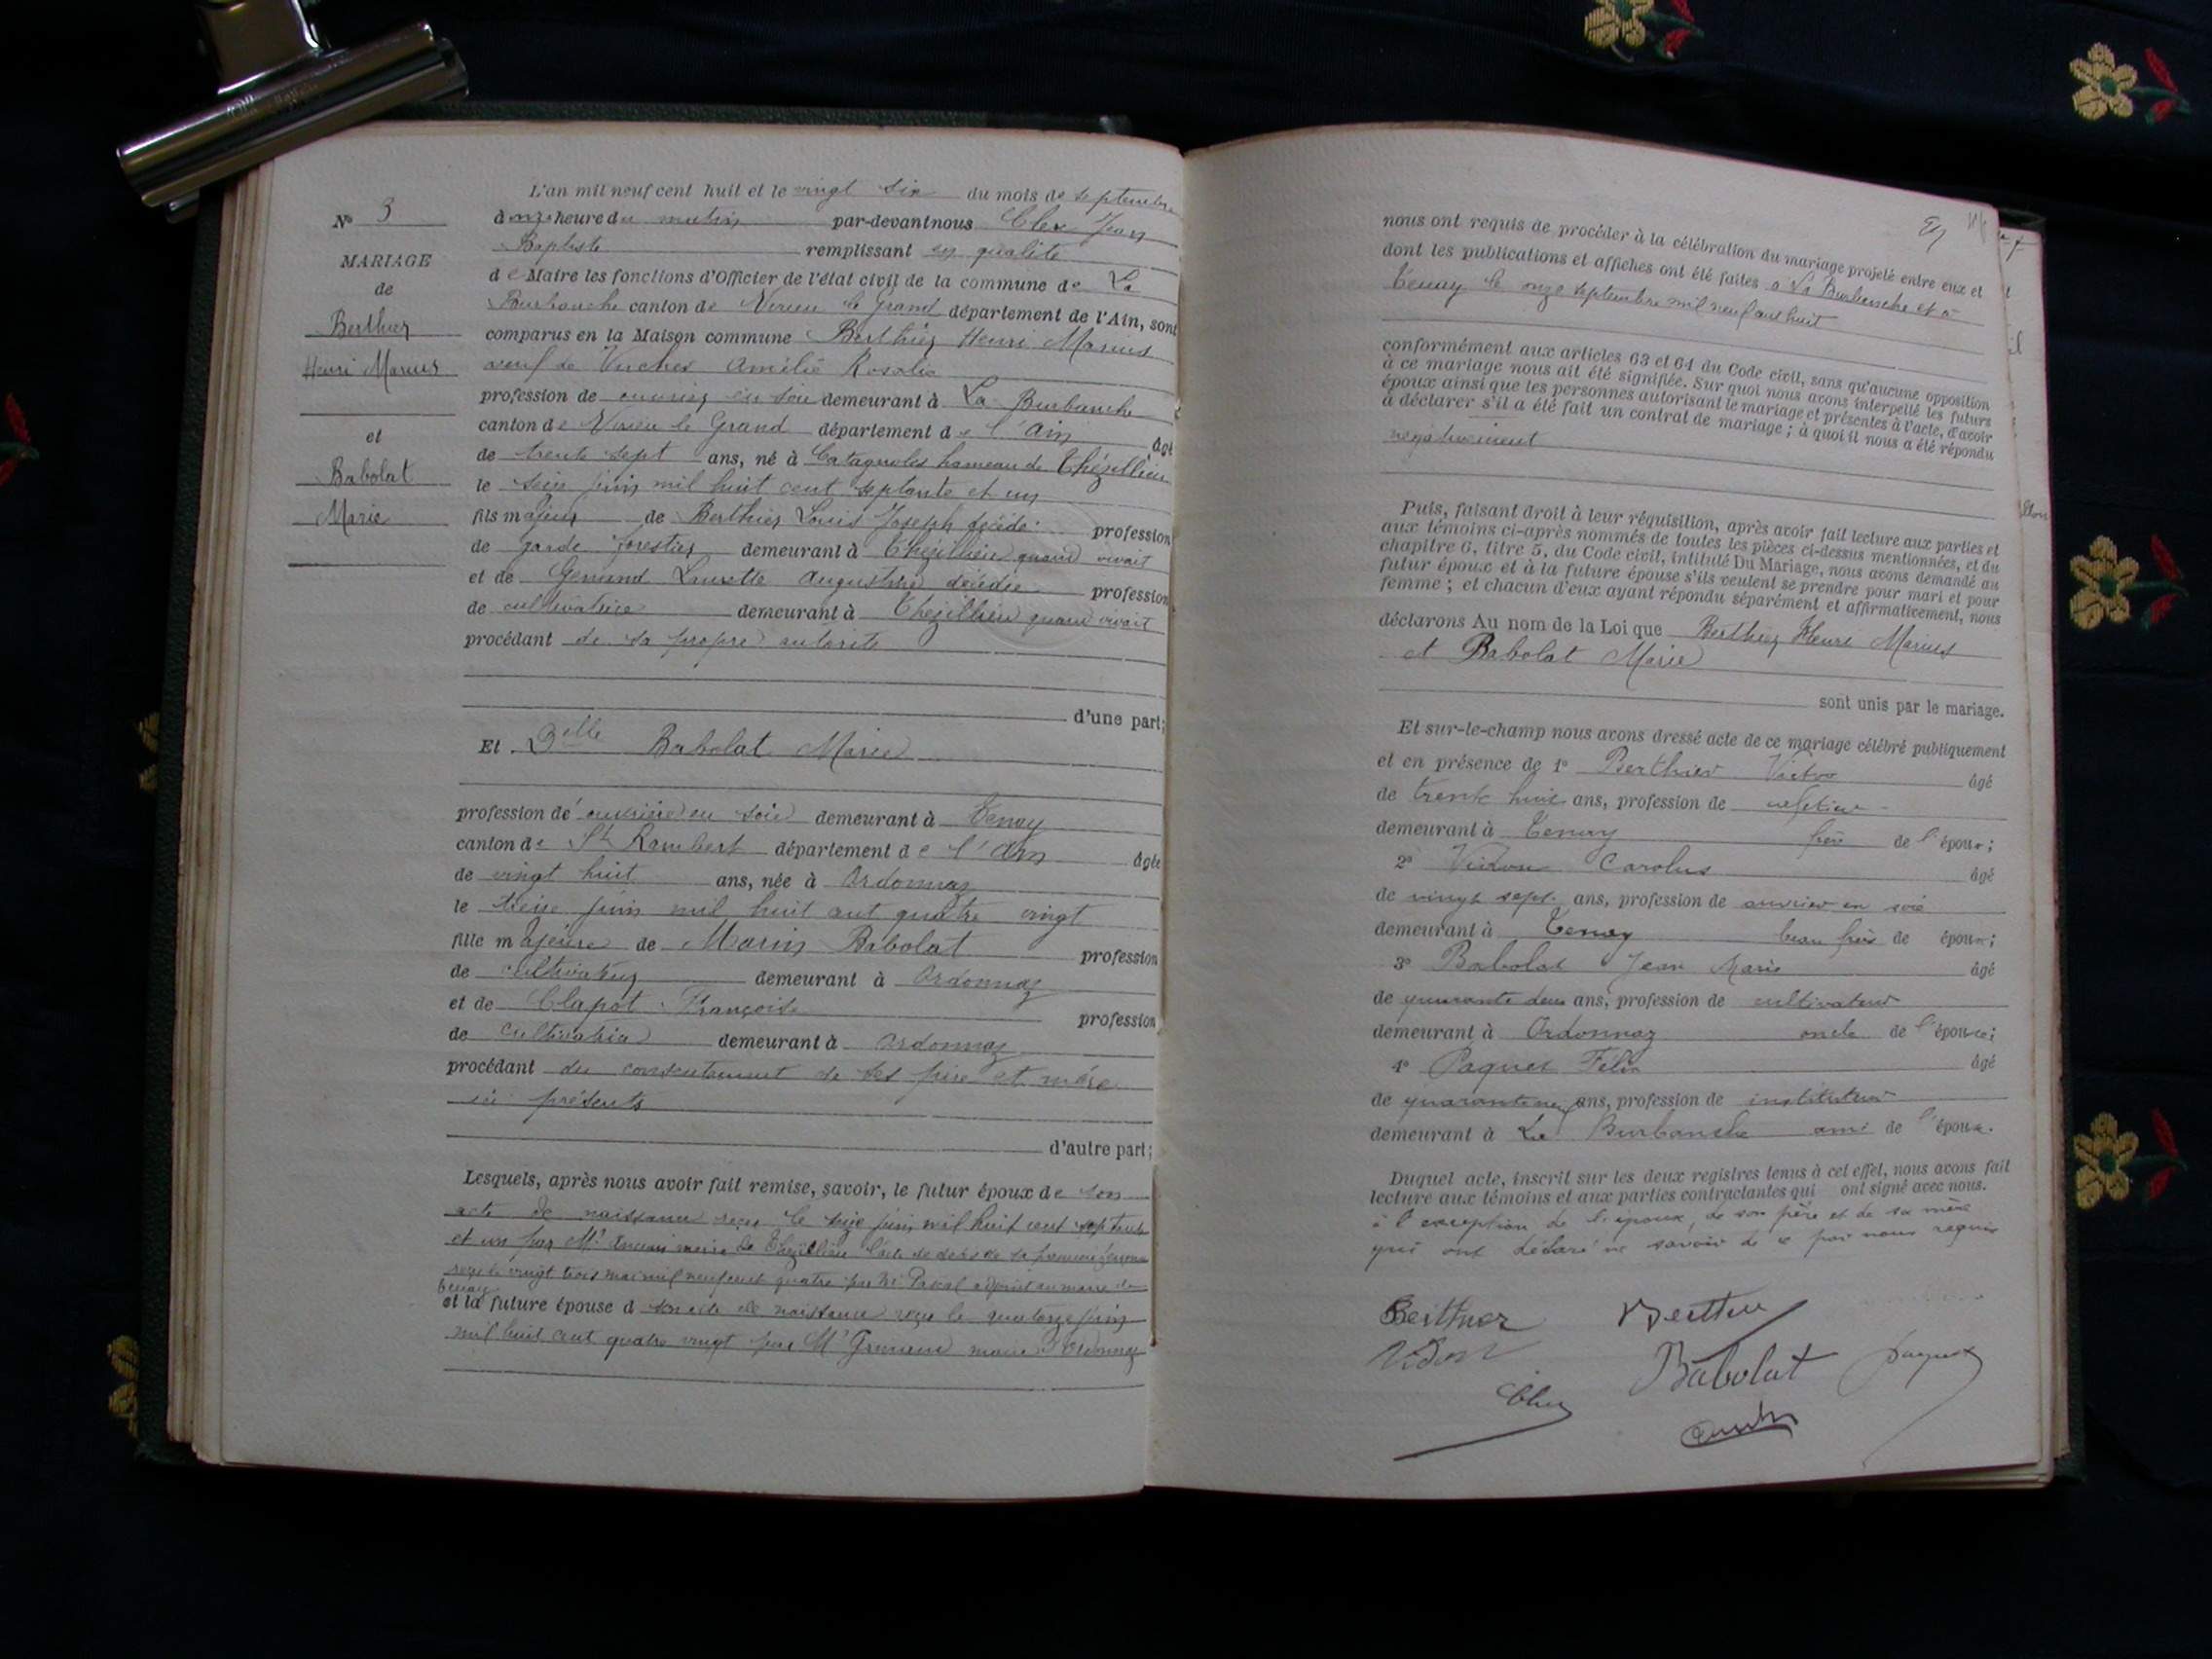 L'an mil neuf cent huit et le vingt six du mois de septembre
N° 3
à onze heure du matin par-devant nous Clex Jean
Baptiste remplissant en qualité
MARIAGE
de
de Maire les fonctions d'Officier de l'état civil de la commune de La
Burbanche canton de Virieu le Grand département de l'Ain, sont
Berthier
comparus en la Maison commune Berthier Henri Marius
Henri Marius
veuf de Amélie Rosalie
profession de ouvrier en soie demeurant à La Burbanche
et
canton de Virieu le Grand département de l'Ain âgé
de trente sept ans, né à Catagnoles hameau de Thézillieu
Babolat
le seize juin mil huit cent septante et un
Marie
fils majeur de Berthier Louis Joseph décédé profession
de garde forestier demeurant à Thézillieu quand vivait
et de Genand Laurette Augustine décédée profession
de cultivatrice demeurant à Thezillieu quand vivait
procédant de sa propre autorité
d'une part;
Et Delle Babolat Marie
profession de ouvrière en soie demeurant à Tenay
canton de St Rambert département de l'Ain âgée
de vingt huit ans, née à Ordonnaz
le treize juin mil huit cent quatre vingt
fille majeure de Marin Babolat profession
de cultivateur demeurant à Ordonnaz
et de Clapot Françoise profession
de cultivatrice demeurant à Ordonnaz
procédant du consentement de ses père et mère
ici présents
d'autre part;
Lesquels, après nous avoir fait remise, savoir, le futur époux de son
acte de naissance reçu le seize juin mil huit cent septante
et un par Mr maire de Thézillieu l'acte de décès de sa première femme
reçu le vingt trois mai mil neuf cent quatre par Mr Pascal adjoint au maire de
Tenay
et la future épouse d son acte de naissance reçu le quatorze juin
mil huit cent quatre vingt par Mr maire d'Ordonnaz
nous ont requis de procéder à la célébration du mariage projeté entre eux et
dont les publications et affiches ont été faites à La Burbanche et à
Tenay le onze septembre mil neuf cent huit
conformément aux articles 63 et 64 du Code civil, sans qu'aucune opposition
à ce mariage nous ait été signifiée. Sur quoi nous avons interpellé les futurs
époux ainsi que les personnes autorisant le mariage et présentes à l'acte, d'avoir
à déclarer s'il a été fait un contrat de mariage; à quoi il nous a été répondu
négativement
Puis, faisant droit à leur réquisition, après avoir fait lecture aux parties et
aux témoins ci-après nommés de toutes les pièces ci-dessus mentionnées, et du
chapitre 6, titre 5, du Code civil, intitulé Du Mariage, nous avons demandé au
futur époux et à la future épouse s'ils veulent se prendre pour mari et pour
femme; et chacun d'eux ayant répondu séparément et affirmativement, nous
déclarons Au nom de la Loi que Berthier Henri Marius
et Babolat Marie
sont unis par le mariage.
Et sur-le-champ nous avons dressé acte de ce mariage célébré publiquement
et en présence de 1° Berthier Victor âgé
de trente huit ans, profession de
demeurant à Tenay frère de l'époux;
2° Vidon Carolus âgé
de vingt sept ans, profession de ouvrier en soie
demeurant à Tenay beau frère de époux;
3° Babolat Jean Marie âgé
de quarante deux ans, profession de cultivateur
demeurant à Ordonnaz oncle de l'épouse;
4° Paquet Félix âgé
de quarante neuf ans, profession de instituteur
demeurant à La Burbanche ami de l'époux.
Duquel acte, inscrit sur les deux registres tenus à cet effet, nous avons fait
lecture aux témoins et aux parties contractantes qui ont signé avec nous.
à l'exception de l'épouse, de son père et de sa mère
qui ont déclaré ne savoir de ce par nous requis
Berthier Berthier
Vidon Babolat Paquet
Clex